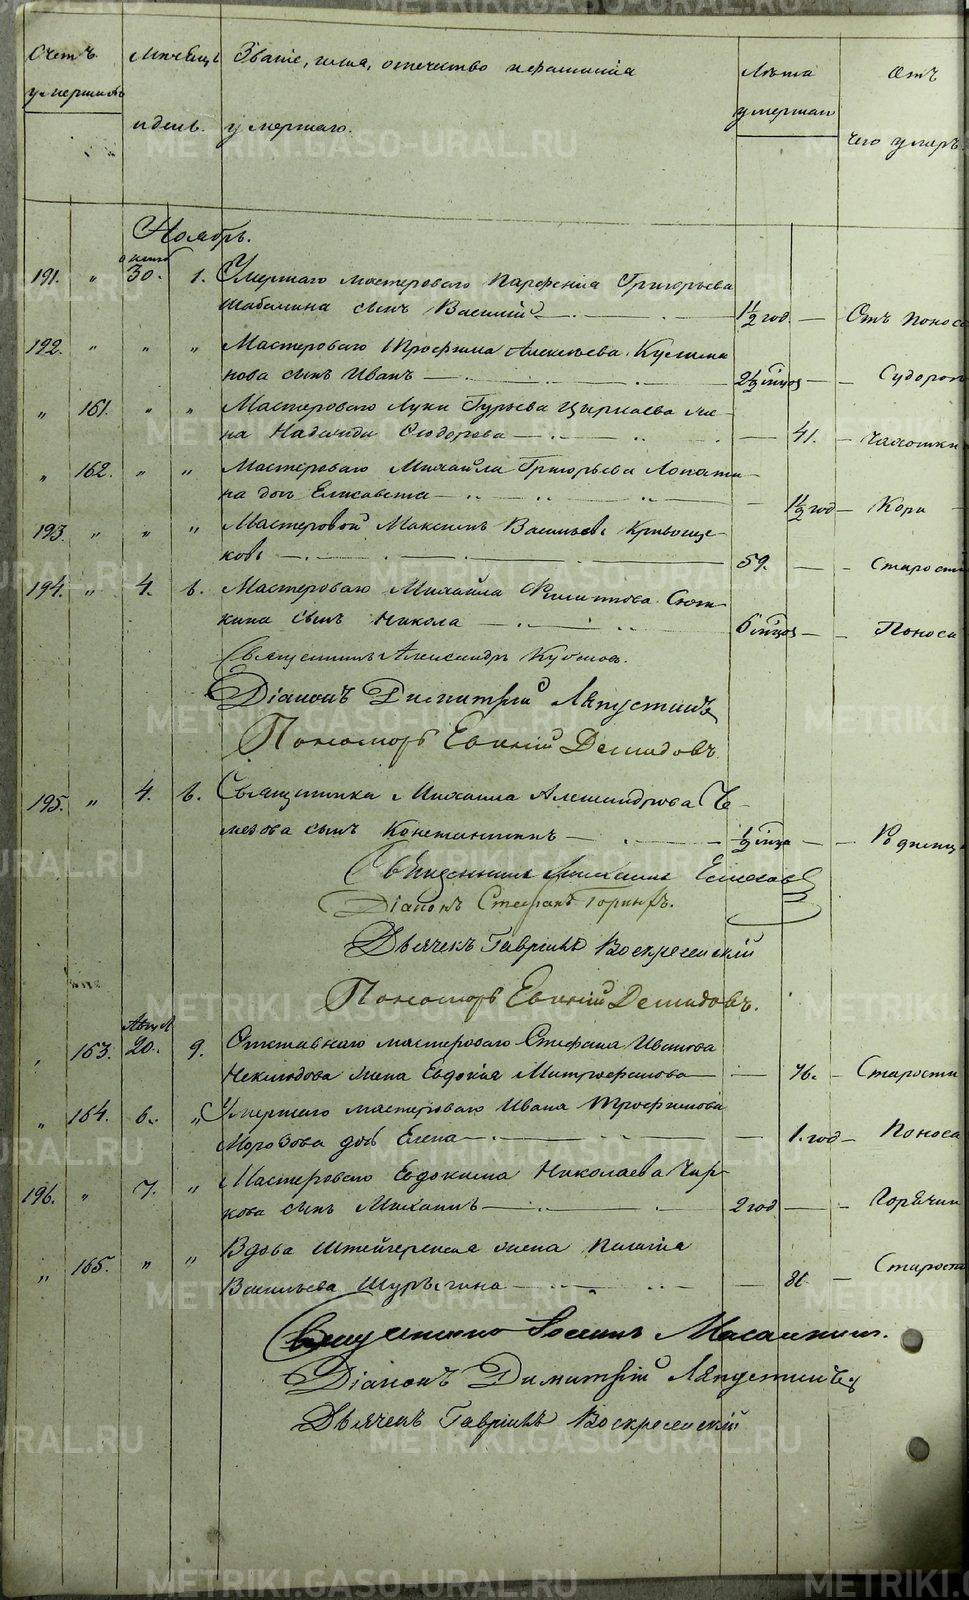 Счетъ умершихъ
Мѣсяцъ и день.
Званіе, имя, отечество и фамилія
умершаго.
Лѣта умершаго
Отъ чего умеръ.
Ноябрь.
191. " октяб 30. 1. Умершаго мастероваго Парфенія Григорьева
Шабалина сынъ Василій 1½ год. Отъ поноса
192. " " " Мастероваго Трофима Алексѣева
нова сынъ Иванъ 2½ мѣсяц
" 161. " " Мастероваго Луки Гурьева же-
на Надежда Сидорова 41. чахотки
" 162. " " Мастероваго Михайла Григорьева Лопати-
на дочь Елисавета 1½ год Кори
193. " " " Мастеровой Максимъ Васильевъ Кривоще-
ковъ 59. Старости
194. " 4. 6. Мастероваго Михайла Филиппова Сют-
кина сынъ Никола Поноса
Священникъ Александръ
Діаконъ Димитрій Ляпустинъ
Пономарь Евгеній Демидовъ
195. " 4. 6. Священника Михаила Александрова Се-
сынъ Константинъ ½ мѣсяца Родимца
Священникъ Михаилъ
Діаконъ Стефанъ
Дьячекъ Гавріилъ Воскресенскій
Пономарь Евгеній Демидовъ.
" 163. 20. 9. Отставнаго мастероваго Стефана Иванова
Неклюдова жена Евдокія Митрофанова 76. Старости
" 164. 6. " Умершаго мастероваго Ивана Трофимова
Морозова дочь Елена 1. год Поноса
196. " 7. " Мастероваго Евдокима Николаева Чир-
кова сынъ Михаилъ 2 год Горячки
" 165. " " Вдова Штейгерская жена Пелагія
Васильева Шурыгина Старости
Священникъ
Діаконъ Димитрій Ляпустинъ
Дьячекъ Гавріилъ Воскресенскій
METRIKI.GASO-URAL.RU